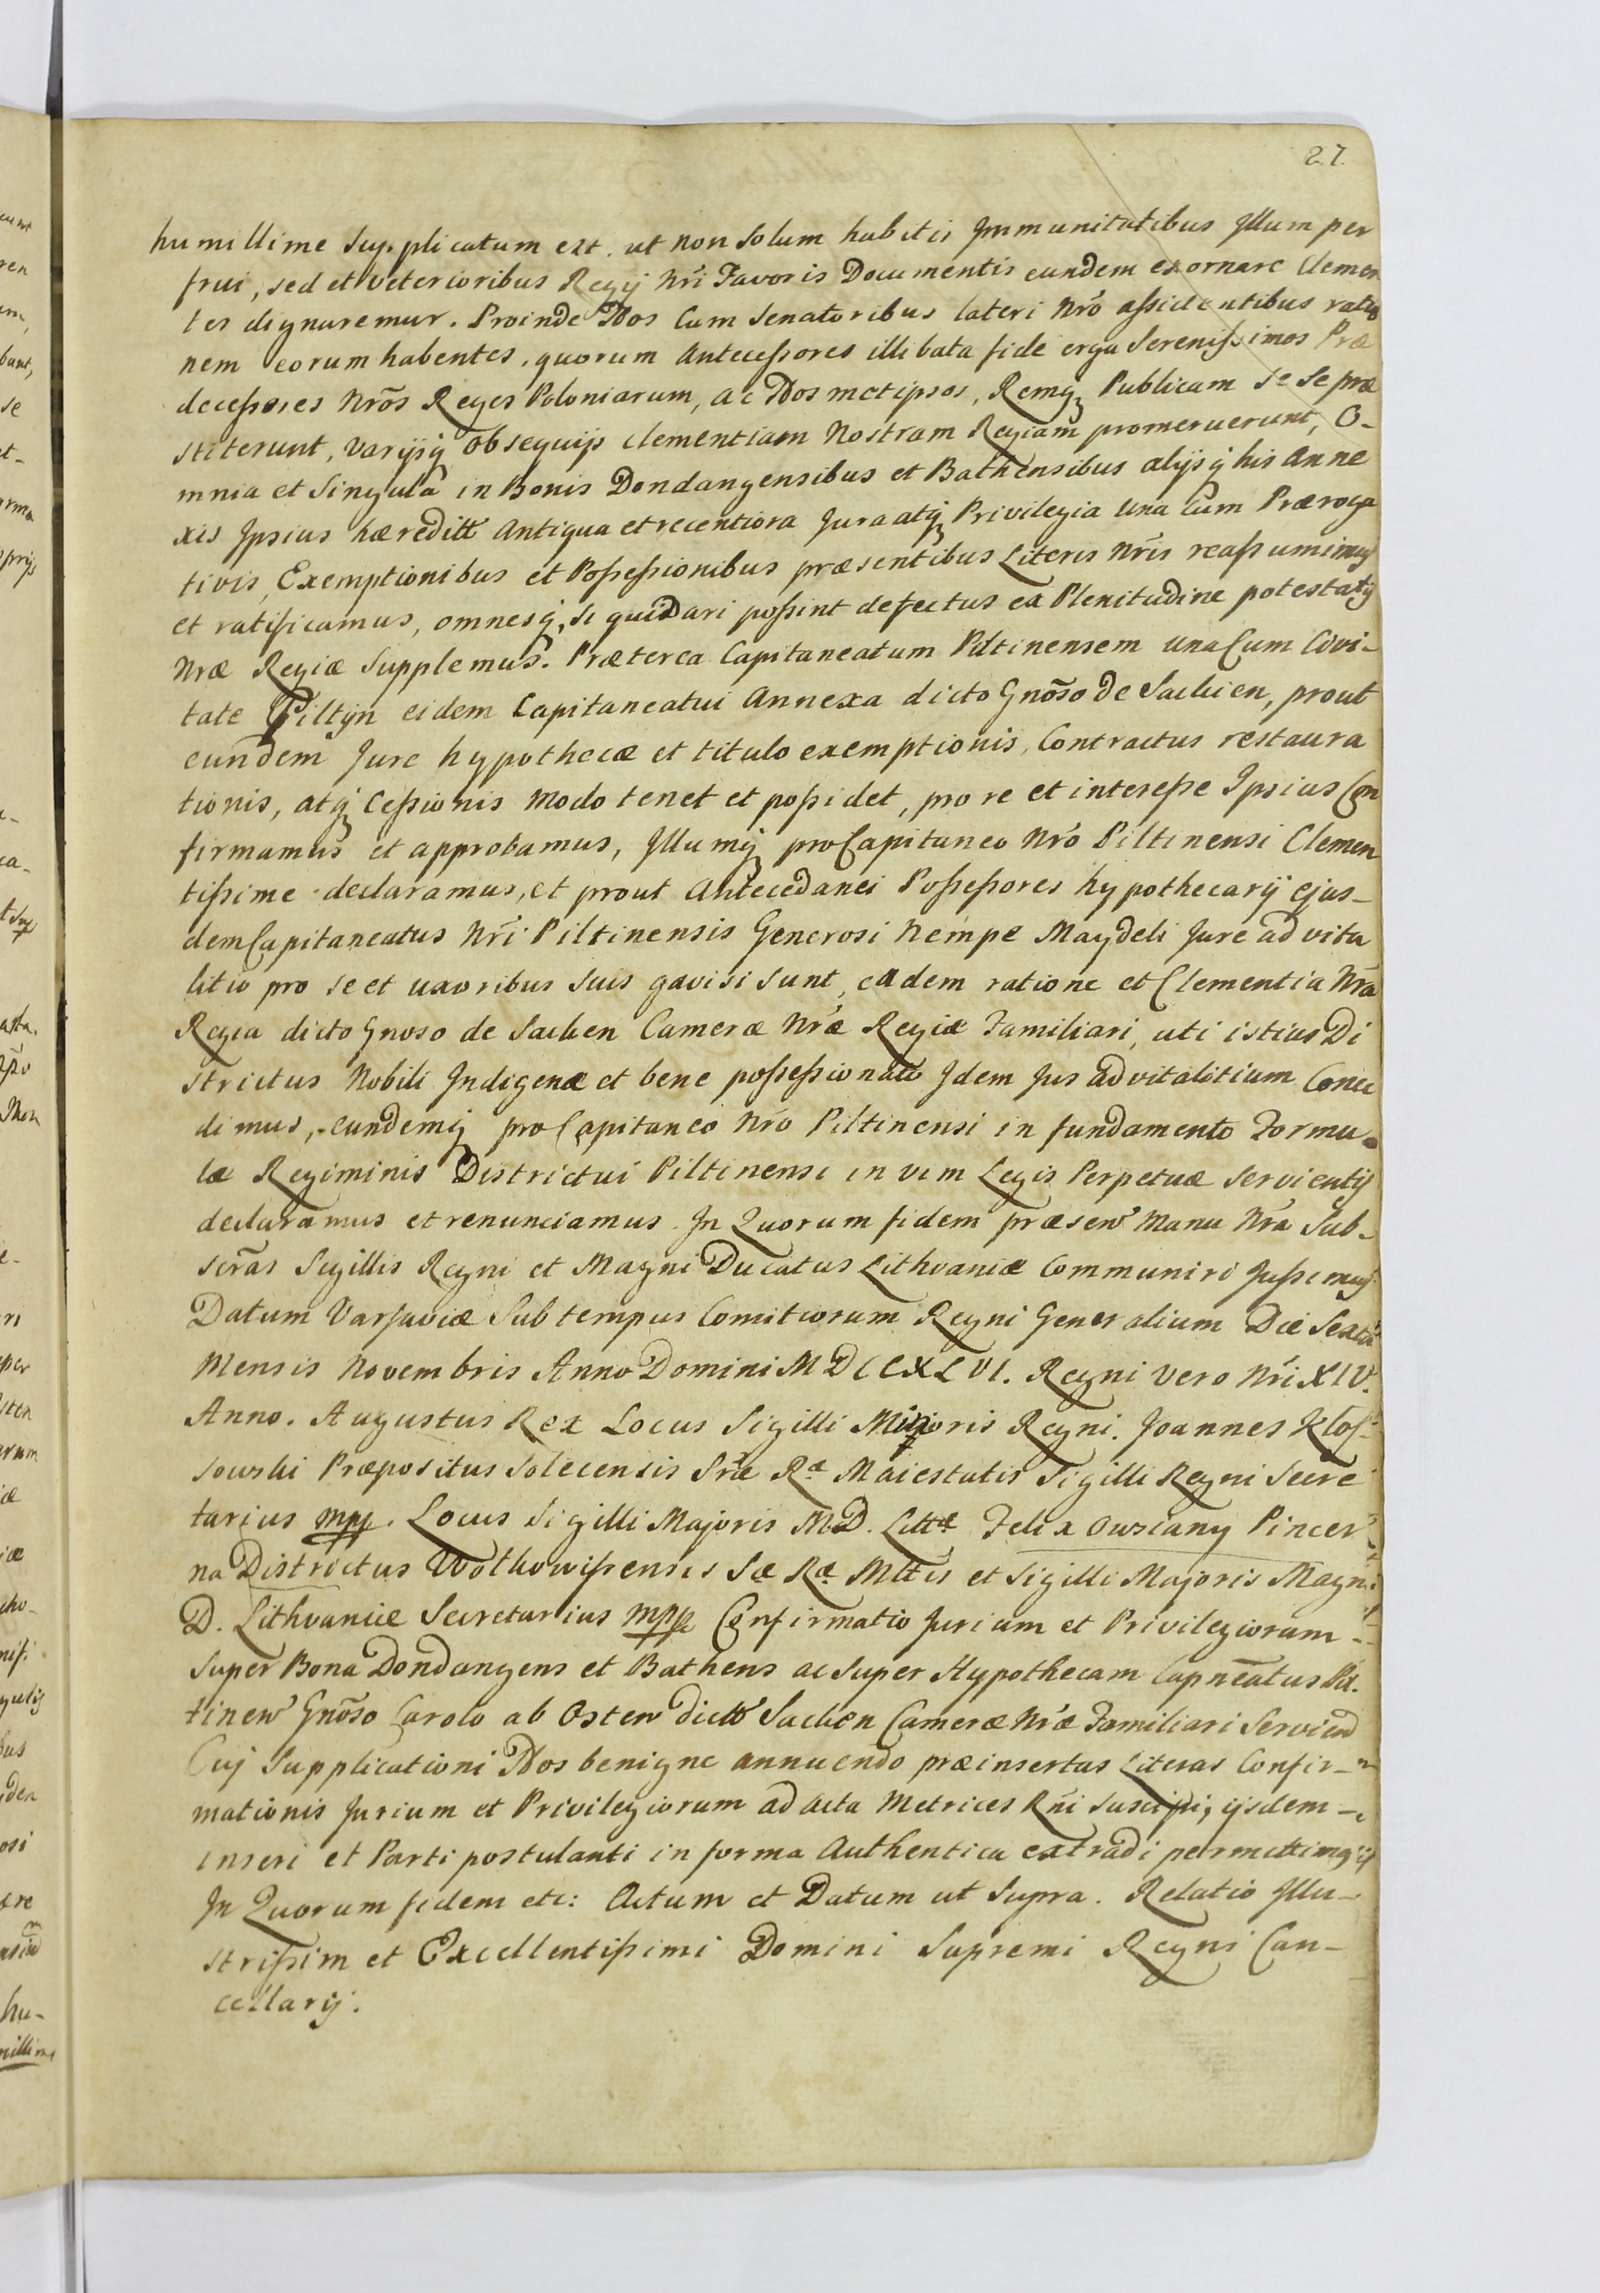 27.
humillime supplicatum est. ut non solum habitis Immunitatibus Illum per
frui, sed et veterioribus Regij Nri Favoris Documentis eundem exornare Clemen
ter dignaremur. Proinde Nos Cum Senatoribus lateri Nro assidentibus ratio
nem eorum habentes, quorum Antecessores illibata fide erga Serenissimos Præ
decessores Nrōs Reges Poloniarum, ac Nos metipsos, Remq Publicam se se præ
stiterunt, varijsq obsequijs clementiam Nostram Regiam promeruerunt, O-
mnia et Singula in Bonis Dondangensibus et Bathensibus alijsq his Anne
xis Ipsius hæreditt Antiqua et recentiora Jura atq Privilegia una Cum Præroga
tivis, Exemptionibus et Possessionibus præsentibus Literis Nris reassumimus
et ratificamus, omnesq, si qui dari possint defectus ex Plenitudine potestatis
Nræ Regiæ Supplemus. Præterea Capitaneatum Piltinensem una Cum Civi-
tate Piltijn eidem Capitaneatui Annexa dicto Gnōso de Sacken, prout
eundem Jure hypothecæ et titulo exemptionis, Contractus restaura
tionis, atq Cessionis modo tenet et possidet, pro re et interesse Ipsius Con
firmamus et approbamus, Illumq pro Capitaneo Nro Piltinensi Clemen
tissime declaramus, et prout Antecedanei Possessores hypothecarij ejus-
dem Capitaneatus Nri Piltinensis Generosi Nempe Maydeli Jure ad vita
litio pro se et uxoribus suis gavisi sunt, eadem ratione et Clementia Nra
Regia dicto Gnoso de Sacken Cameræ Nræ Regiæ Familiari, uti istius Di
strictus Nobili Indigenæ et bene possessionato Idem Jus advitalitium Conce
dimus, eundemq pro Capitaneo Nro Piltinensi in fundamento Formu-
læ Regiminis Districtui Piltinensi in vim Legis Perpetuæ servientis
declaramus et renunciamus. In Quorum fidem præsen manu Nra Sub-
scras Sigillis Regni et Magni Ducatus Lithvaniæ Communiri Jussimus
Datum Varsaviæ Sub tempus Comitiorum Regni Generalium Die Sexta
Mensis Novembris Anno Domini MDCCXLVI. Regni vero Nri XIV.
Anno. Augustus Rex Locus Sigilli Minoris Regni. Joannes Klos-
sowski Præpositus Solecensis Sræ Ræ Maiestatis Sigilli Regni Secre
tarius mpp. Locus Sigilli Majoris M.D. Littæ Felix Owsiany Pincer
na Districtus Wolkowissensis Sæ Ræ Mttis et Sigilli Majoris Magni
D. Lithvaniæ Secretarius mpp Confirmatio Jurium et Privilegiorum
Super Bona Dondangens et Bathens ac super Hypothecam Capneatus Pil-
tinen Gnōso Carolo ab Osten dict Sacken Cameræ Nræ Familiari Serviend
Cuj Supplicationi Nos benigne annuendo præinsertas Literas Confir-
mationis Jurium et Privilegiorum ad Acta Metrices Rni suscipi, ijsdem
inseri et Parti postulanti in forma Authentica extradi permittimus
In Quorum fidem etc: Actum et Datum ut Supra. Relatio Illu-
strissim et Excellentissimi Domini Supremi Regni Can-
cellarij.